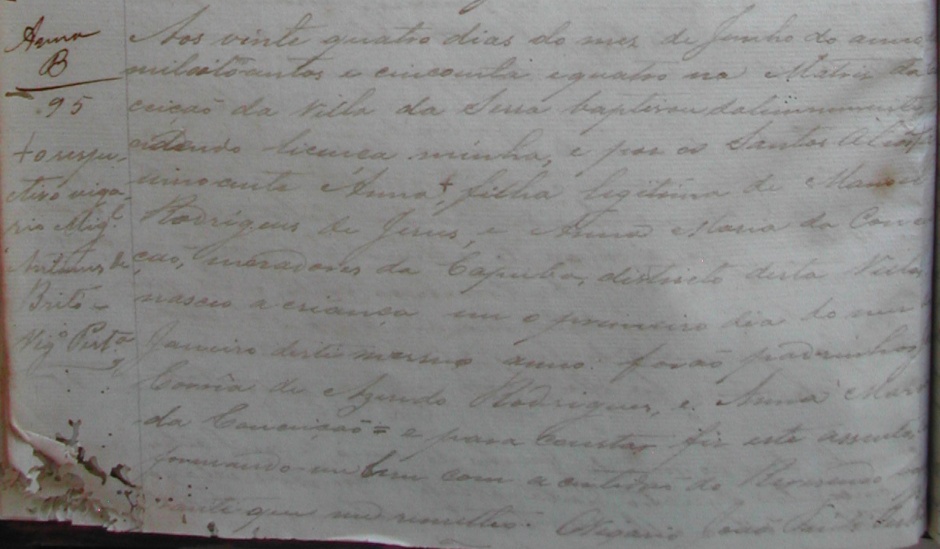 Anna
B
95
+ o respe-
ctivo viga-
rio Mig.l
Antunes de
Brito
Vig.o Pert.o
Aos vinte quatro dias do mez de Junho do anno
mil oitoantos e cincoenta e quatro na Matriz da
ceição da Villa da Serra baptizou
licença minha, e poz os Santos Oleos
innocente Anna +, filha legitima de Manoel
Rodrigues de Jesus, e Anna Maria da Conc
ção, moradores da Capuba, districto desta Villa
nasceo a criança em o primeiro dia do mez
Janeiro deste mesmo anno: forão padrinhos
Corrêa de Azeredo Rodrigues, e Anna Mari
da Conceição = e para constar fiz este assento
com a do Reverendo
que me remetteo. O Vigario João